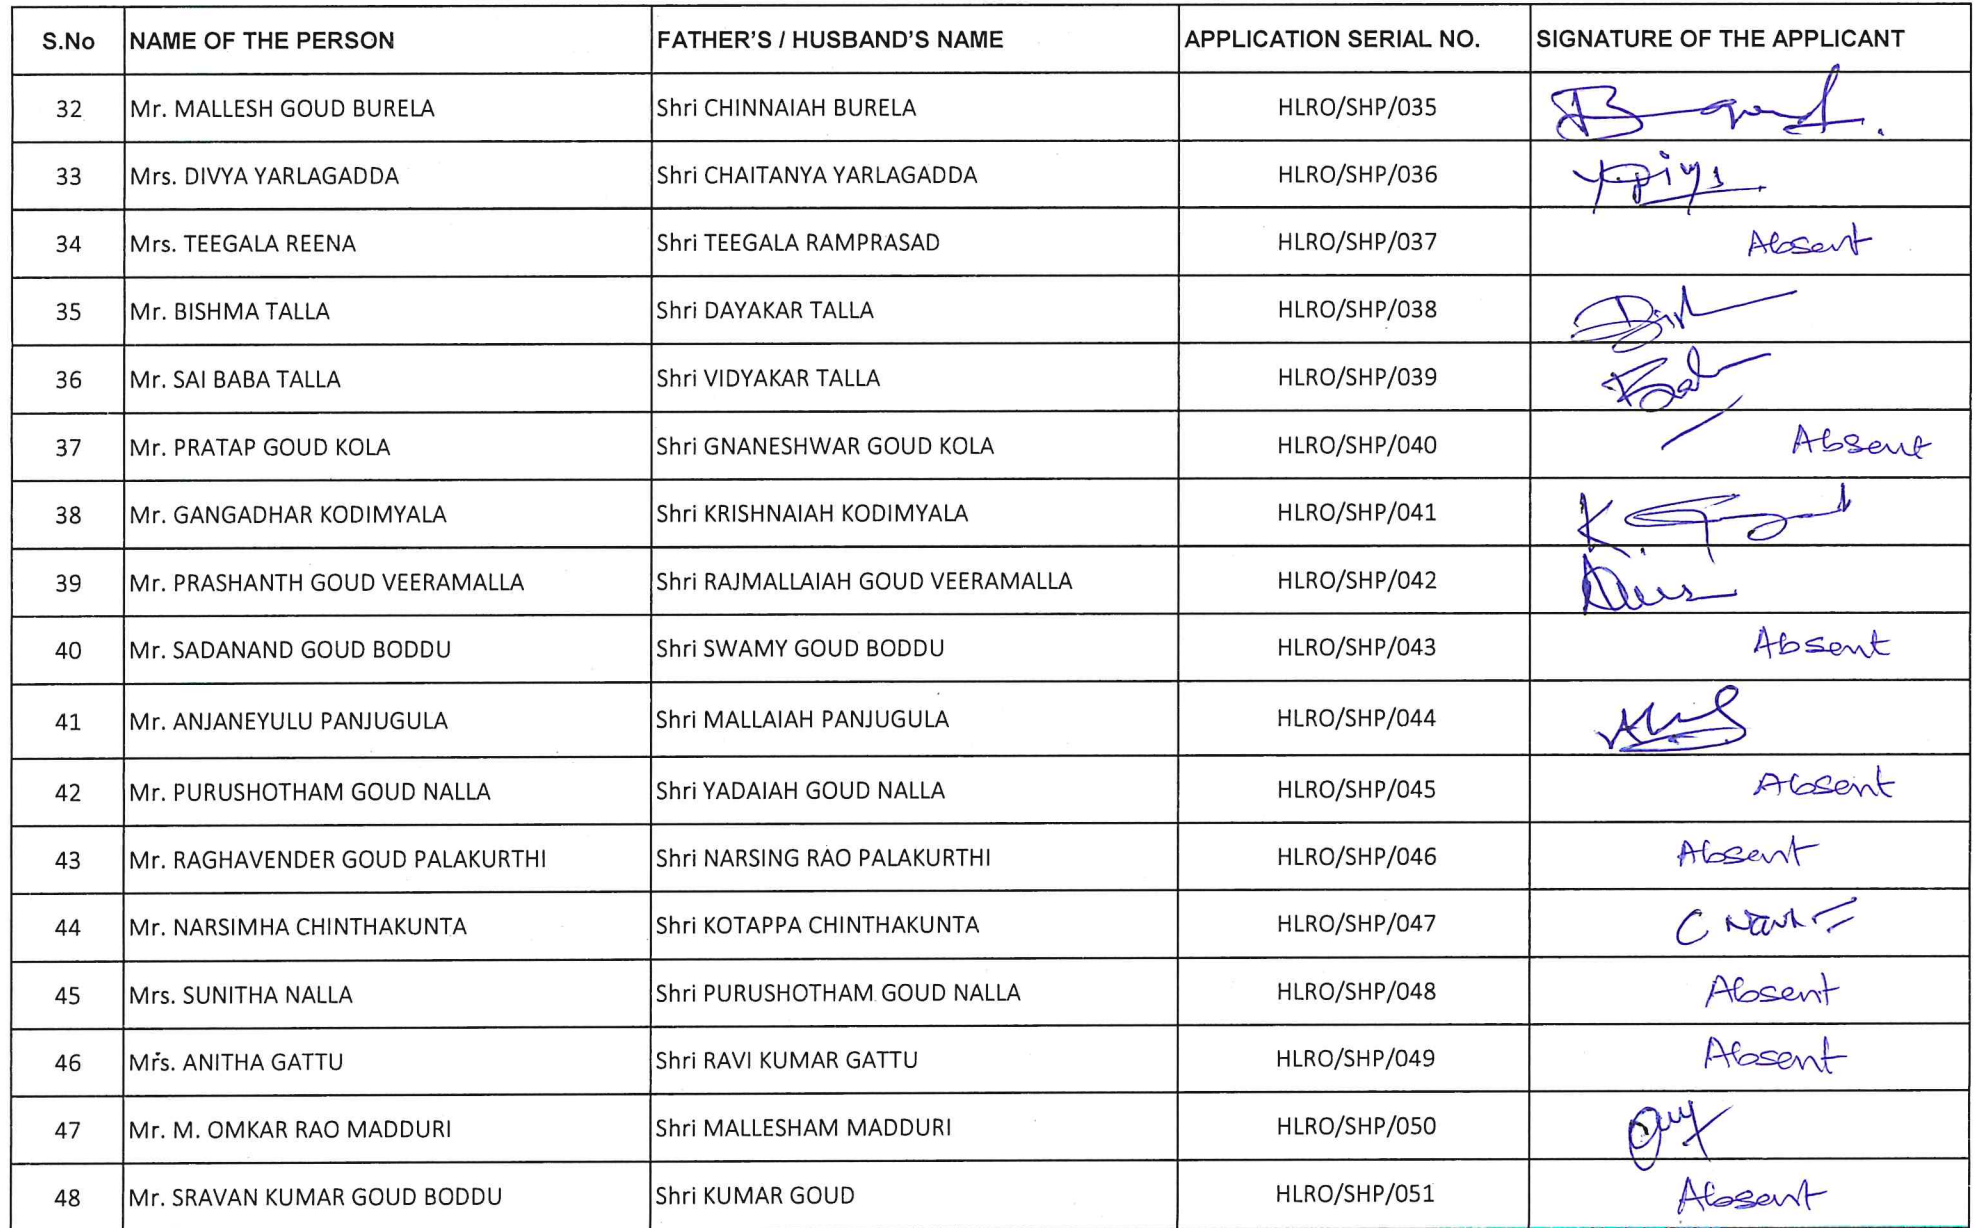 S.No NAME OF THE PERSON FATHER'S / HUSBAND'S NAME APPLICATION SERIAL NO. SIGNATURE OF THE APPLICANT
32 Mr. MALLESH GOUD BURELA Shri CHINNAIAH BURELA HLRO/SHP/035
33 Mrs. DIVYA YARLAGADDA Shri CHAITANYA YARLAGADDA HLRO/SHP/036
34 Mrs. TEEGALA REENA Shri TEEGALA RAMPRASAD HLRO/SHP/037 Absent
35 Mr. BISHMA TALLA Shri DAYAKAR TALLA HLRO/SHP/038
36 Mr. SAI BABA TALLA Shri VIDYAKAR TALLA HLRO/SHP/039
37 Mr. PRATAP GOUD KOLA Shri GNANESHWAR GOUD KOLA HLRO/SHP/040 Absent
38 Mr. GANGADHAR KODIMYALA Shri KRISHNAIAH KODIMYALA HLRO/SHP/041
39 Mr. PRASHANTH GOUD VEERAMALLA Shri RAJMALLAIAH GOUD VEERAMALLA HLRO/SHP/042
40 Mr. SADANAND GOUD BODDU Shri SWAMY GOUD BODDU HLRO/SHP/043 Absent
41 Mr. ANJANEYULU PANJUGULA Shri MALLAIAH PANJUGULA HLRO/SHP/044
42 Mr. PURUSHOTHAM GOUD NALLA Shri YADAIAH GOUD NALLA HLRO/SHP/045 Absent
43 Mr. RAGHAVENDER GOUD PALAKURTHI Shri NARSING RAO PALAKURTHI HLRO/SHP/046 Absent
44 Mr. NARSIMHA CHINTHAKUNTA Shri KOTAPPA CHINTHAKUNTA HLRO/SHP/047
45 Mrs. SUNITHA NALLA Shri PURUSHOTHAM GOUD NALLA HLRO/SHP/048 Absent
46 Mrs. ANITHA GATTU Shri RAVI KUMAR GATTU HLRO/SHP/049 Absent
47 Mr. M. OMKAR RAO MADDURI Shri MALLESHAM MADDURI HLRO/SHP/050
48 Mr. SRAVAN KUMAR GOUD BODDU Shri KUMAR GOUD HLRO/SHP/051 Absent